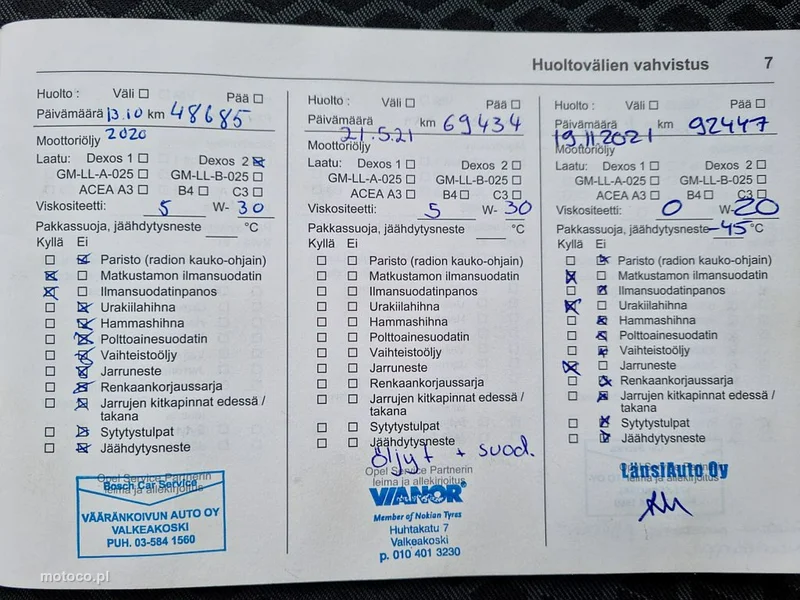 Huoltovälien vahvistus 7
Huolto : Väli Pää
Päivämäärä 13.10 km 48685
2020
Moottoriöljy
Laatu: Dexos 1 Dexos 2
GM-LL-A-025 GM-LL-B-025
ACEA A3 B4 C3
Viskositeetti: 5 W- 30
Pakkassuoja, jäähdytysneste °C
Kyllä Ei
Paristo (radion kauko-ohjain)
Matkustamon ilmansuodatin
Ilmansuodatinpanos
Urakiilahihna
Hammashihna
Polttoainesuodatin
Vaihteistoöljy
Jarruneste
Renkaankorjaussarja
Jarrujen kitkapinnat edessä /
takana
Sytytystulpat
Jäähdytysneste
Opel Service Partnerin
leima ja allekirjoitus
Bosch Car Service
VÄÄRÄNKOIVUN AUTO OY
VALKEAKOSKI
PUH. 03-584 1560
Huolto : Väli Pää
Päivämäärä km 69434
21.5.21
Moottoriöljy
Laatu: Dexos 1 Dexos 2
GM-LL-A-025 GM-LL-B-025
ACEA A3 B4 C3
Viskositeetti: 5 W- 30
Pakkassuoja, jäähdytysneste °C
Kyllä Ei
Paristo (radion kauko-ohjain)
Matkustamon ilmansuodatin
Ilmansuodatinpanos
Urakiilahihna
Hammashihna
Polttoainesuodatin
Vaihteistoöljy
Jarruneste
Renkaankorjaussarja
Jarrujen kitkapinnat edessä /
takana
Sytytystulpat
Jäähdytysneste
öljyt + suod.
Opel Service Partnerin
leima ja allekirjoitus
VIANOR
Member of Nokian Tyres
Huhtakatu 7
Valkeakoski
p. 010 401 3230
Huolto : Väli Pää
Päivämäärä km 92447
19.11.2021
Moottoriöljy
Laatu: Dexos 1 Dexos 2
GM-LL-A-025 GM-LL-B-025
ACEA A3 B4 C3
Viskositeetti: 0 W- 20
Pakkassuoja, jäähdytysneste -45 °C
Kyllä Ei
Paristo (radion kauko-ohjain)
Matkustamon ilmansuodatin
Ilmansuodatinpanos
Urakiilahihna
Hammashihna
Polttoainesuodatin
Vaihteistoöljy
Jarruneste
Renkaankorjaussarja
Jarrujen kitkapinnat edessä /
takana
Sytytystulpat
Jäähdytysneste
Opel Service Partnerin
LänsiAuto Oy
leima ja allekirjoitus
motoco.pl